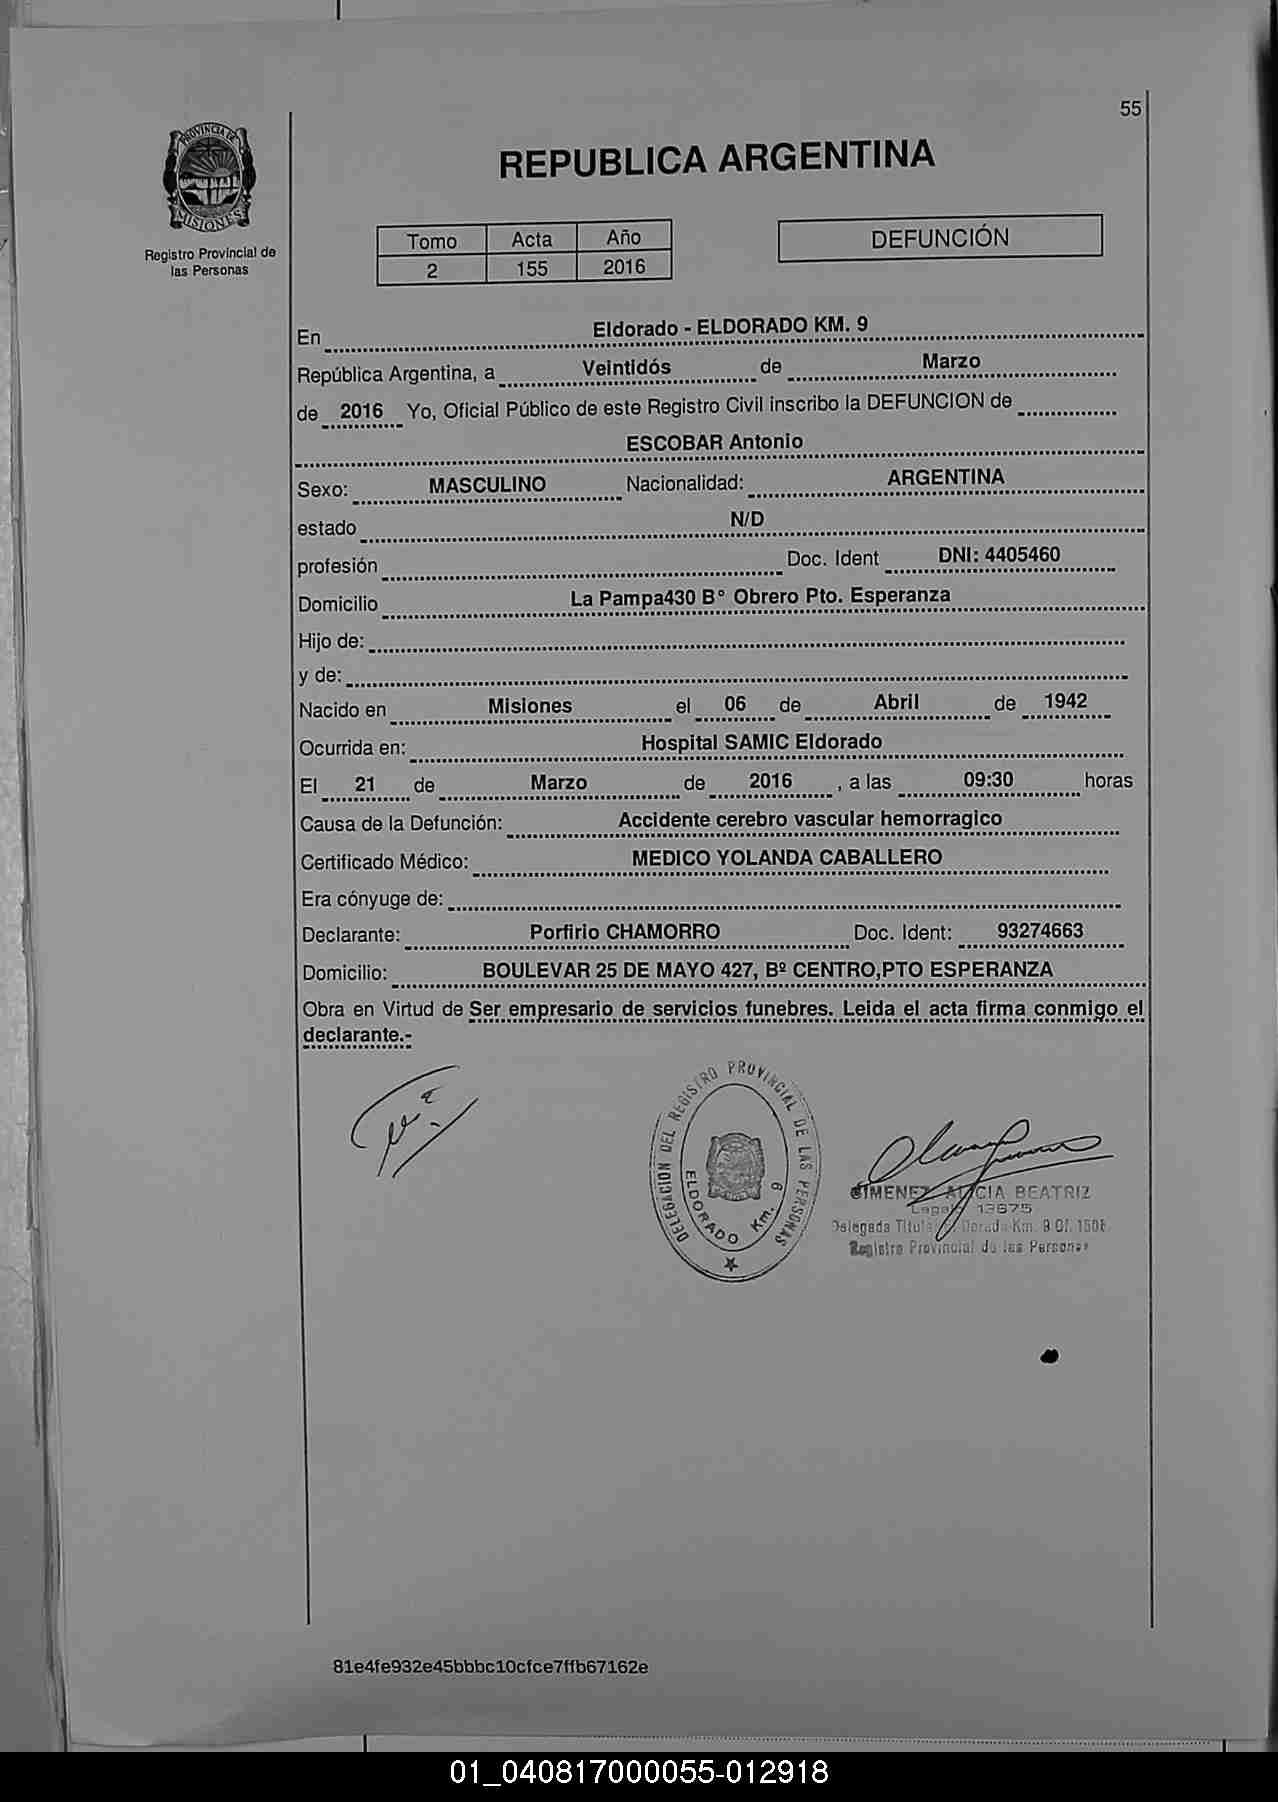 55
PROVINCIA DE
MISIONES
Registro Provincial de
las Personas
REPUBLICA ARGENTINA
Tomo Acta Año
2 155 2016
DEFUNCIÓN
En Eldorado - ELDORADO KM. 9
República Argentina, a Veintidós de Marzo
de 2016 Yo, Oficial Público de este Registro Civil inscribo la DEFUNCION de
ESCOBAR Antonio
Sexo: MASCULINO Nacionalidad: ARGENTINA
estado N/D
profesión Doc. Ident DNI: 4405460
Domicilio La Pampa430 B° Obrero Pto. Esperanza
Hijo de:
y de:
Nacido en Misiones el 06 de Abril de 1942
Ocurrida en: Hospital SAMIC Eldorado
El 21 de Marzo de 2016 , a las 09:30 horas
Causa de la Defunción: Accidente cerebro vascular hemorragico
Certificado Médico: MEDICO YOLANDA CABALLERO
Era cónyuge de:
Declarante: Porfirio CHAMORRO Doc. Ident: 93274663
Domicilio: BOULEVAR 25 DE MAYO 427, Bº CENTRO,PTO ESPERANZA
Obra en Virtud de Ser empresario de servicios funebres. Leida el acta firma conmigo el
declarante.-
DELEGACION DEL REGISTRO PROVINCIAL DE LAS PERSONAS
ELDORADO Km. 9
GIMENEZ ALICIA BEATRIZ
Legajo 13875
Delegada Titular Km. 9 Of.
Registro Provincial de las Personas
81e4fe932e45bbbc10cfce7ffb67162e
01_040817000055-012918